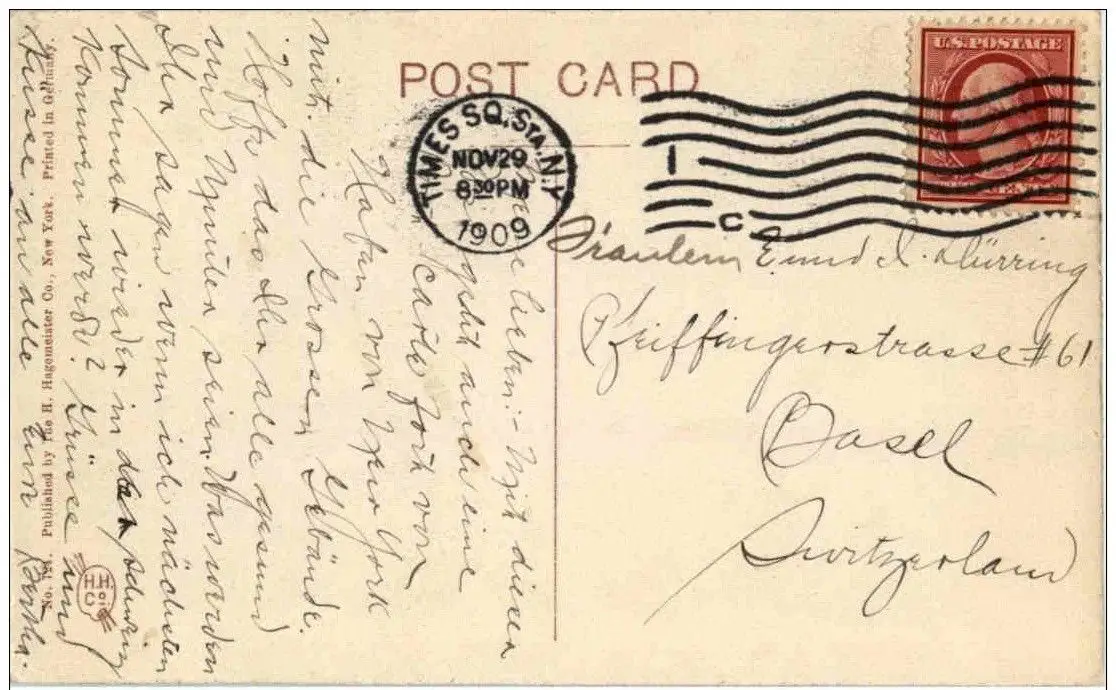 POST CARD
U.S. POSTAGE
TIMES SQ. STA. N.Y.
NOV 29
8 30 PM
1909
1
C
Fräulein E und I. Dürring
Pfeiffingerstrasse #61
Basel
Switzerland
lieben:- Mit dieser
geht auch eine
Carte fort von
Hafen von New York
mit die Grossen Gebäude.
Hoffe das Ihr alle gesund
und Munter sein. Was werden
Ihr sagen wenn ich nächsten
Sommer wieder in der Schweiz
Kommen werde? Grüsse und
Küsse an alle Eure Bertha.
No. Published by The H. Hagemeister Co., New York. Printed in Germany.
HH
Co